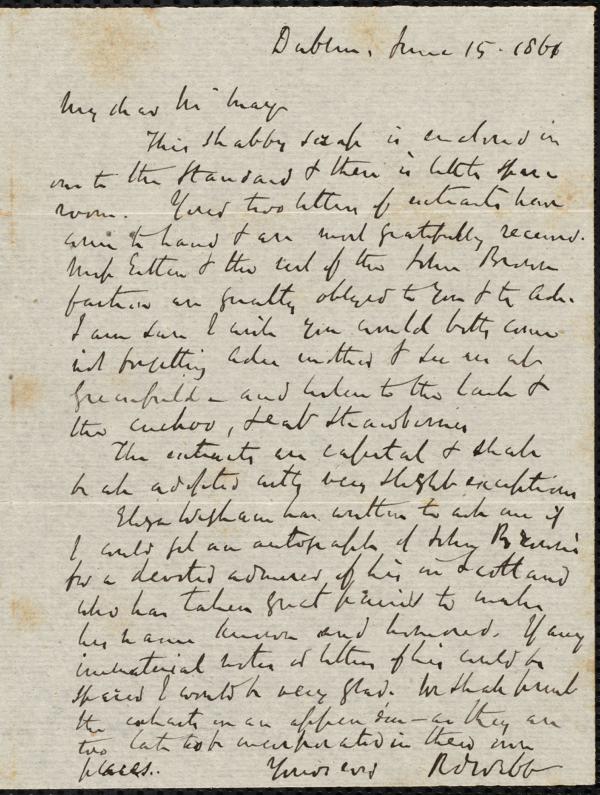 Dublin, June 15. 1861
My dear Mr May
This shabby scrap is enclosed in
one to the Standard & there is little spare
room. Your two letters of extracts have
come to hand & are most gratefully received.
Miss Estlin & the rest of the John Brown
faction are greatly obliged to you & to Ada.
I am sure I wish you would both come
not forgetting Ada's mother & see us at
Greenfield - and listen to the lark &
the cuckoo, & eat strawberries
The extracts are capital & shall
be all adopted with very slight exceptions
Eliza Wigham has written to ask me if
I could get an autograph of John Brown's
for a devoted admirer of his in Scotland
who has taken great pains to make
his name known and honored. If any
immaterial notes or letters of his could be
spared I would be very glad. We shall print
the extracts in an appendix - as they are
too late to be incorporated in their own
places..
Yours ever R D Webb